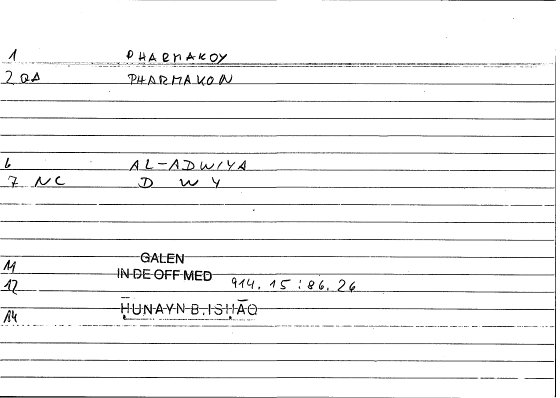 1 PHARMAKOY
2 QA PHARMAKON
6 AL-ADWIYA
7 NC D W Y
11 GALEN
IN DE OFF MED
12 914.15:86.26
14 ḤUNAYN B.ISḤĀQ